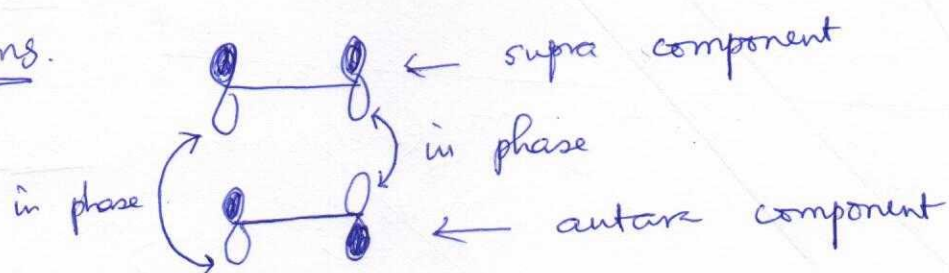 ns.
← supra component
in phase
in phase
← antara component